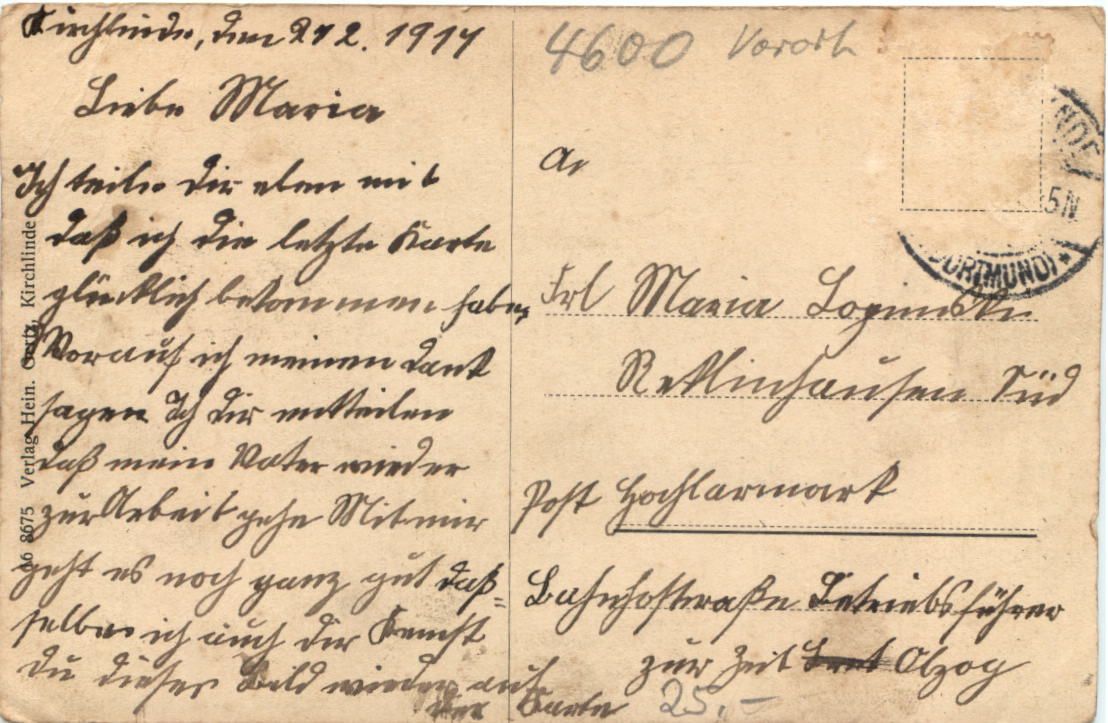 Kirchlinde, den 27 2. 1917
Liebe Maria
Ich teile dir eben mit
daß ich die letzte Karte
glücklich bekommen habe,
Worauf ich meinen Dank
sagen Ich dir mitteilen
daß mein Vater wieder
zur Arbeit gehe Mit mir
geht es noch ganz gut daß=
selbe ich auch dir Kennst
du dieses Bild wieder auf
der Karte
16 8675 Verlag Hein. Kirchlinde
4600 Vorort
An
Frl Maria
Reklinhausen Süd
Post Hochlarmark
Bahnhofstraße Betriebsführer
zur Zeit Olzog
25,-
5N
(DORTMUND)